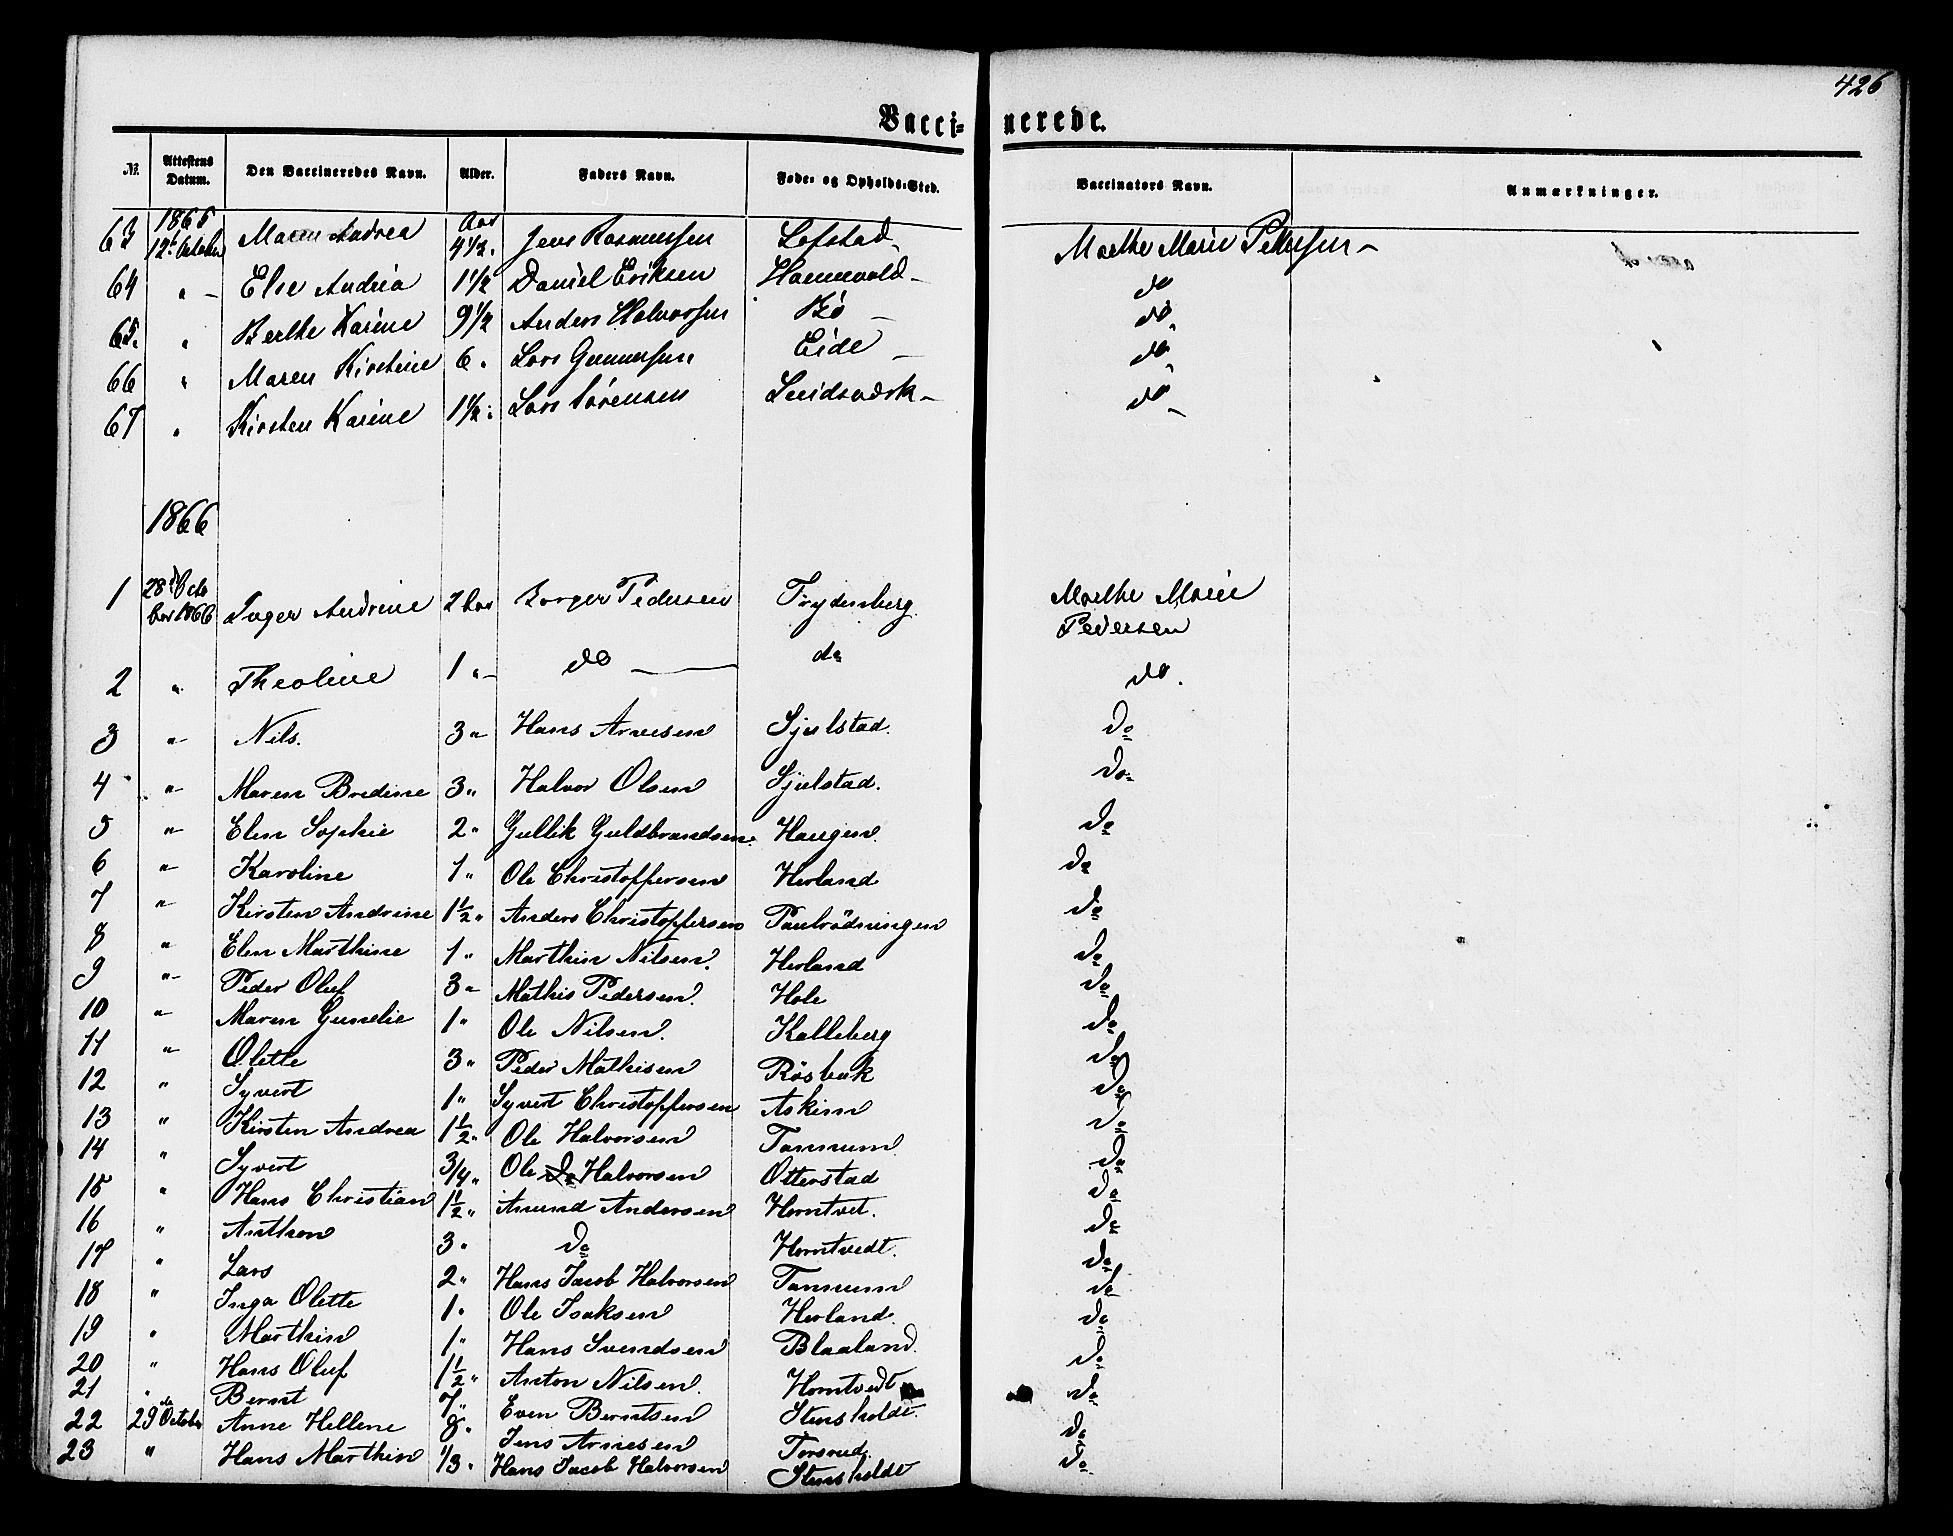 426
Vacci= nerede.
№. Attestens Datum. Den Vaccineredes Navn. Alder. Faders Navn. Føde= og Opholds=Sted. Vaccinators Navn. Anmærkninger.
63 1865 12te October Maren Andrea Aar 4 1/2. Jens Rasmussen Lofstad Marthe Marie Pettersen
64 " Else Andrea 1 1/2 Daniel Eriksen do
65. " Berthe Karine 9 1/2 Anders Halvorsen Bø do
66 " Maren Kirstine 6 " Lars Gunnersen Eide do
67 " Kirsten Karine 1 1/2 " Lars Sørensen do
1866
1 28de October 1866 Inger Andrine 2 Aar Borger Pedersen Frydenberg Marthe Marie
Pedersen
2 " Theoline 1 " do do do.
3 " Nils. 3 " Hans Arvesen Sjulstad. do
4 " Maren Bredine 3 " Halvor Olsen Sjulstad. do
5 " Elen Sophie 2 " Gullik Guldbrandsen. Haugen. do
6 " Karoline 1 " Ole Christoffersen Herland do
7 " Kirsten Andrine 1 1/2 " Anders Christoffersen Paulrödningen do
8 " Elen Marthine 1 " Marthin Nilsen. Herland do
9 " Peder Oluf 3 " Mathis Pedersen. Hole do
10 " Maren Gunelie 1 " Ole Nilsen. Kalleberg do
11 " Olette 3 " Peder Mathisen Røsbak do
12 " Syvert 1 " Syvert Christoffersen Askim do
13 " Kirsten Andrea 1 1/2 " Ole Halvorsen Tamnum do
14 " Syvert 3/4 " Ole do Halvorsen Otterstad do
15 " Hans Christian 1 1/2 " Amund Andersen Horntvet. do
16 " Anthon 3 " do Horntvedt. do
17 " Lars 2 " Hans Jacob Halvorsen Tamnum do
18 " Inga Olette 1 " Ole Isaksen Herland. do
19 " Marthin 1 " Hans Svendsen Blaaland. do
20 " Hans Oluf 1 1/2 " Anton Nilsen. Horntvedt do
21 " Bernt 7 " Even Berntsen Stensholdt. do
22 29de October Anne Hellene 8 " Jens Arnesen Torsrud do
23 " Hans Marthin 1/3 " Hans Jacob Halvorsen Stensholdt do